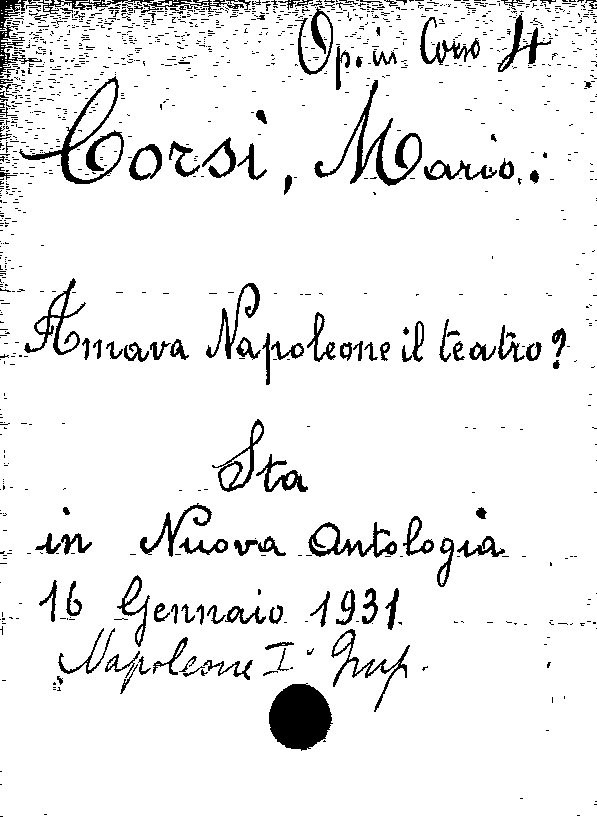 Op. in Corso 4
Corsi, Mario.:
Amava Napoleone il teatro?
Sta
in Nuova Antologia
16 Gennaio 1931
Napoleone I° Imp.